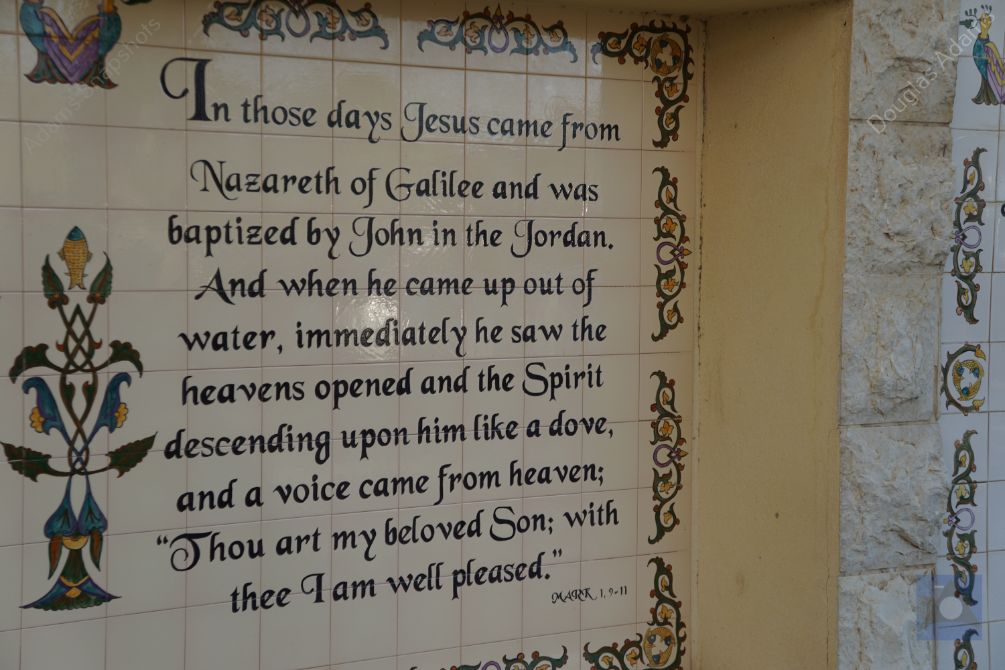 In those days Jesus came from
Nazareth of Galilee and was
baptized by John in the Jordan.
And when he came up out of
water, immediately he saw the
heavens opened and the Spirit
descending upon him like a dove,
and a voice came from heaven;
“Thou art my beloved Son; with
thee I am well pleased.”
MARK 1, 9-11
Adams Snapshots
Douglas Adams